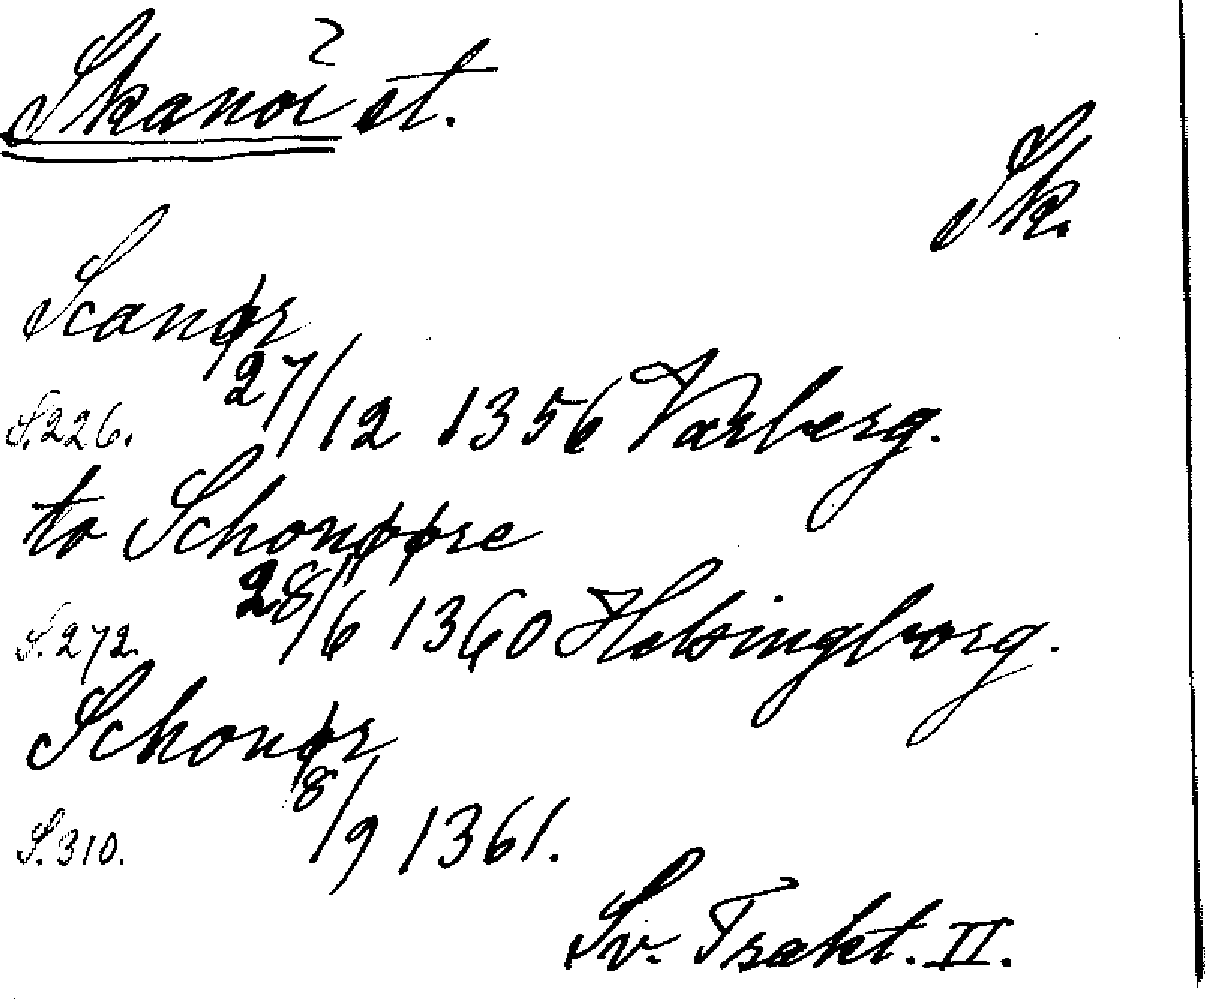 Skanör st.
Sk.
Scanør
S. 226. 27/12 1356 Varberg.
to Schonøøre
S. 272. 28/6 1360 Helsingborg.
Schonør
S. 310. 8/9 1361.
Sv. Trakt. II.